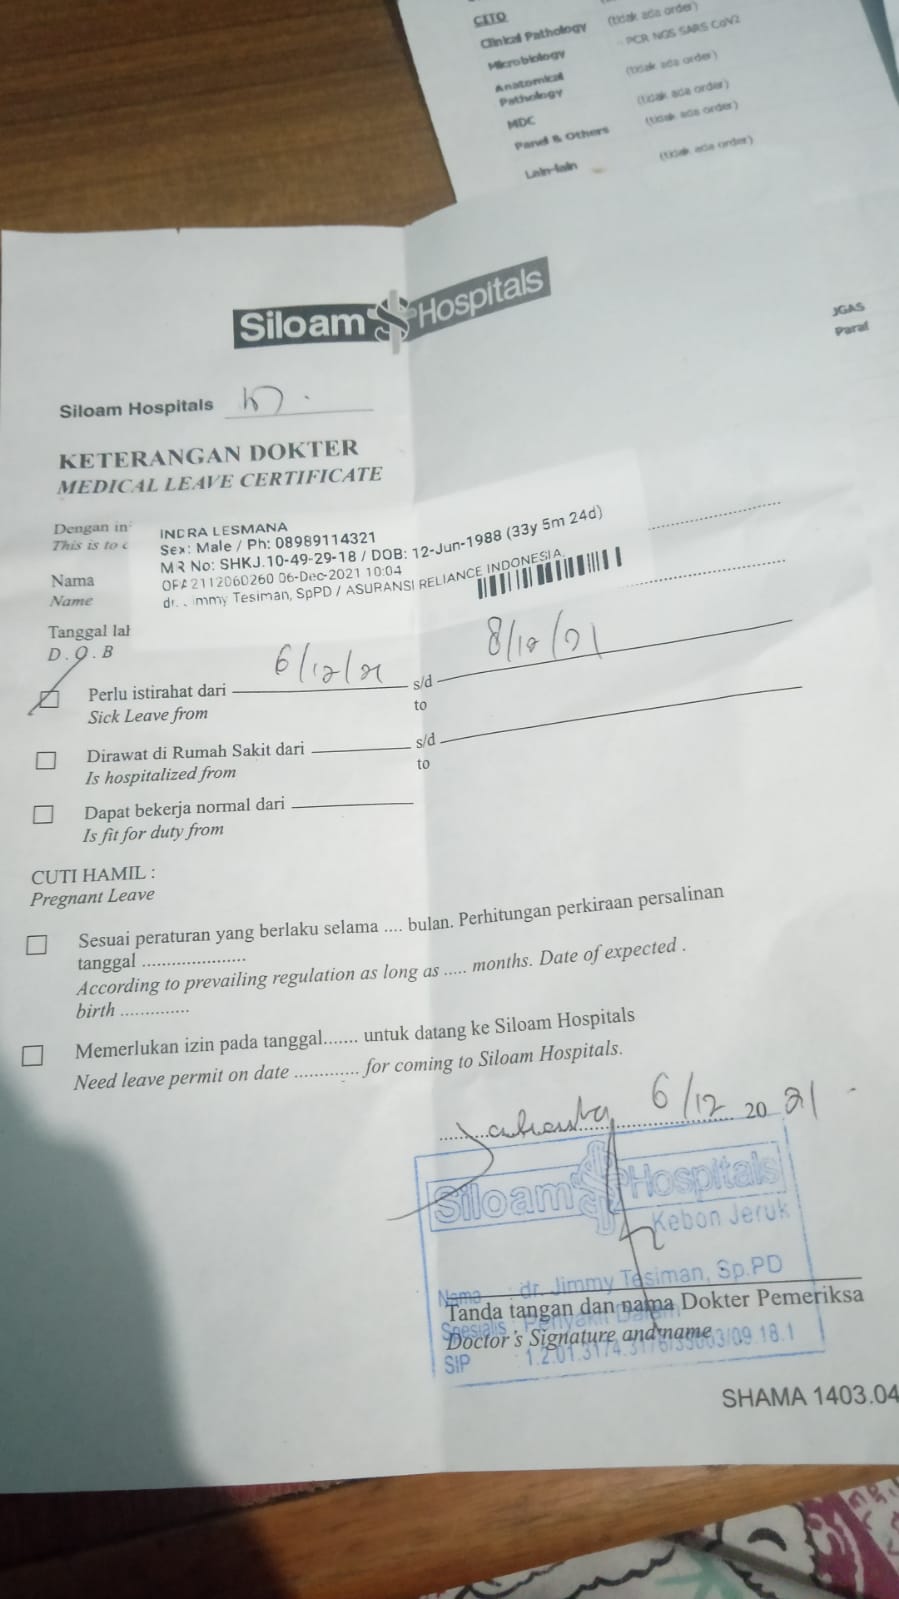 CITO
(tidak ada order)
Clinical Pathology
(tidak ada order)
Microbiology
- PCR NGS SARS CoV2
Anatomical
Pathology
(tidak ada order)
MDC
(tidak ada order)
Panel & Others
(tidak ada order)
Lain-lain
(tidak ada order)
Siloam Hospitals
Paraf
Siloam Hospitals
KETERANGAN DOKTER
MEDICAL LEAVE CERTIFICATE
Dengan in
This is to c
INDRA LESMANA
Sex: Male / Ph: 08989114321
MR No: SHKJ.10-49-29-18 / DOB: 12-Jun-1988 (33y 5m 24d)
OPA2112060260 06-Dec-2021 10:04
dr. Jimmy Tesiman, SpPD / ASURANSI RELIANCE INDONESIA.
Nama
Name
Tanggal lah
D.O.B
Perlu istirahat dari 6/12/21 s/d 8/12/21
Sick Leave from to
Dirawat di Rumah Sakit dari s/d
Is hospitalized from to
Dapat bekerja normal dari
Is fit for duty from
CUTI HAMIL :
Pregnant Leave
Sesuai peraturan yang berlaku selama .... bulan. Perhitungan perkiraan persalinan
tanggal .....................
According to prevailing regulation as long as ..... months. Date of expected .
birth ..............
Memerlukan izin pada tanggal....... untuk datang ke Siloam Hospitals
Need leave permit on date ............ for coming to Siloam Hospitals.
Jakarta 6/12 20 21
Siloam Hospitals
Kebon Jeruk
Nama : dr. Jimmy Tesiman, Sp.PD
Tanda tangan dan nama Dokter Pemeriksa
Spesialis : Penyakit Dalam
Doctor's Signature and name
SIP
SHAMA 1403.04